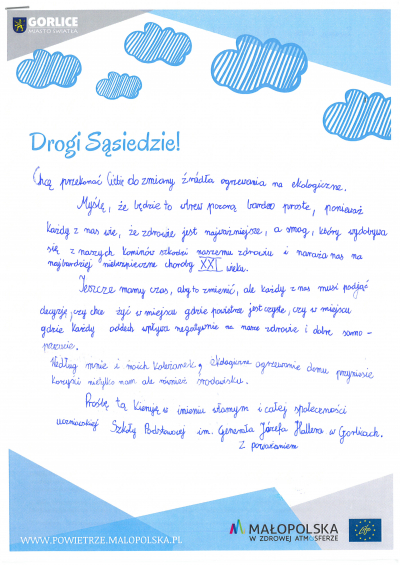 GORLICE
MIASTO ŚWIATŁA
Drogi Sąsiedzie!
Chcę przekonać Cię do zmiany źródła ogrzewania na ekologiczne.
Myślę, że będzie to wbrew pozorą bardzo proste, ponieważ
każdy z nas wie, że zdrowie jest najważniejsze, a smog, który wydobywa
się z naszych kominów szkodzi naszemu zdrowiu i naraża nas na
najbardziej niebezpieczne choroby XXI wieku.
Jeszcze mamy czas, aby to zmienić, ale każdy z nas musi podjąć
decyzję, czy chce żyć w miejscu gdzie powietrze jest czyste, czy w miejscu
gdzie każdy oddech wpływa negatywnie na nasze zdrowie i dobre samo-
poczucie.
Według mnie i moich koleżanek, ekologiczne ogrzewanie domu przyniesie
korzyści nie tylko nam ale również środowisku.
Prośbę tą kieruję w imieniu własnym i całej społeczności
uczniowskiej Szkoły Podstawowej im. Generała Józefa Hallera w Gorlicach.
Z poważaniem
WWW.POWIETRZE.MALOPOLSKA.PL
MAŁOPOLSKA
W ZDROWEJ ATMOSFERZE
Life